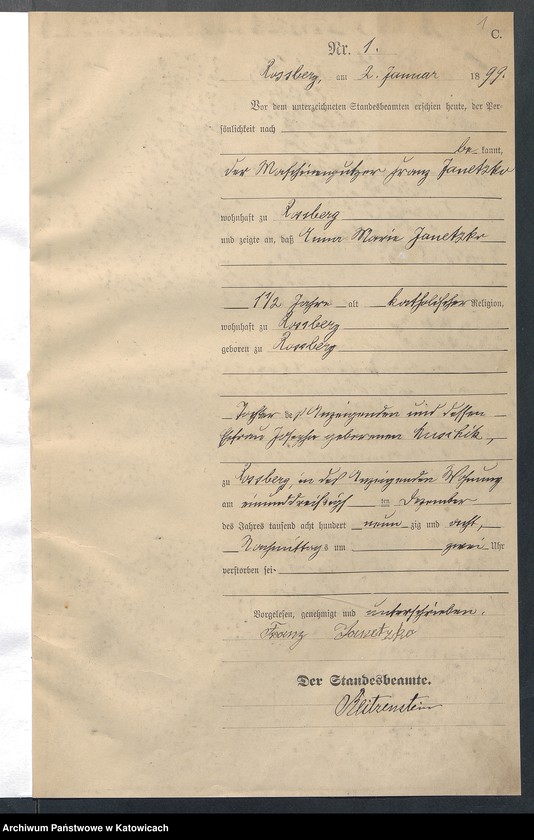 1
C.
Nr. 1.
Rossberg, am 2. Januar 1899.
Vor dem unterzeichneten Standesbeamten erschien heute, der Per-
sönlichkeit nach
be kannt,
der Maschinenputzer Franz Janetzko
wohnhaft zu Rossberg
und zeigte an, daß Anna Marie Janetzko
1 1/2 Jahre alt katholischer Religion,
wohnhaft zu Rossberg
geboren zu Rossberg
Tochter des Anzeigenden und dessen
Ehefrau Josepha geborenen
zu Rossberg, in des Anzeigenden Wohnung
am einunddreißigsten Dezember
des Jahres tausend acht hundert neunzig und acht,
Nachmittags um zwei Uhr
verstorben sei.
Vorgelesen, genehmigt und unterschrieben.
Franz Janetzko
Der Standesbeamte.
Archiwum Państwowe w Katowicach